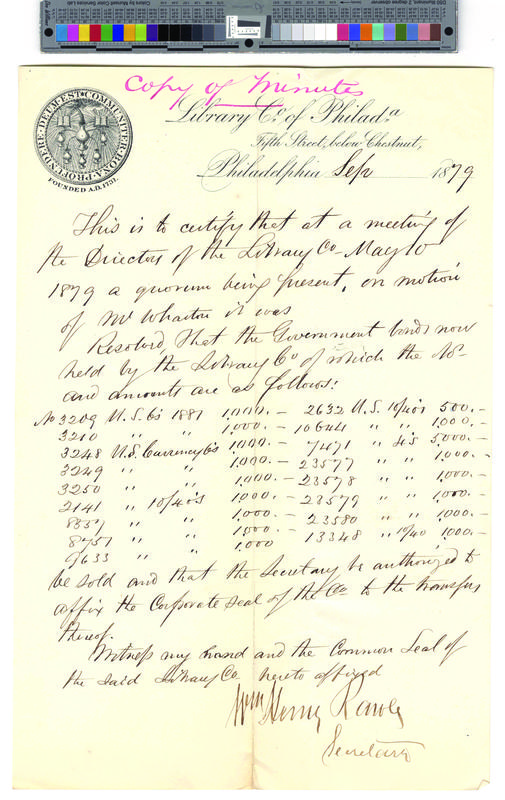 Copy of Minutes
COMMUNITER BONA PROFUNDERE DEUM EST
FOUNDED A.D. 1731.
Library Co. of Philada.
Fifth Street, below Chestnut,
Philadelphia Sep 1879
This is to certify that at a meeting of
the Directors of the Library Co May 10
1879 a quorum being present, on motion
of Mr Wharton it was
Resolved That the Government bonds now
held by the Library Co of which the Nos
and amounts are as follows:
No 3209 U.S. 6s 1881 1,000.– 2632 U.S. 10/40s 500.–
3210 " " " 1,000.– 10644 " " 1,000.–
3248 U.S. Currency 6s 1,000.– 7471 " 4s 5,000.–
3249 " " 1,000.– 23577 " " 1,000.–
3250 " " 1,000.– 23578 " " 1,000.–
2141 " 10/40s 1,000.– 23579 " " 1,000.–
8357 " " 1,000.– 23580 " " 1,000.–
8751 " " 1,000.– 13348 " 10/40 1,000.–
9633 " " 1,000
be sold and that the Secretary be authorized to
affix the Corporate Seal of the Co to the transfers
thereof.
Witness my hand and the Common Seal of
the said Library Co hereto affixed
Wm Henry Rawle
Secretary